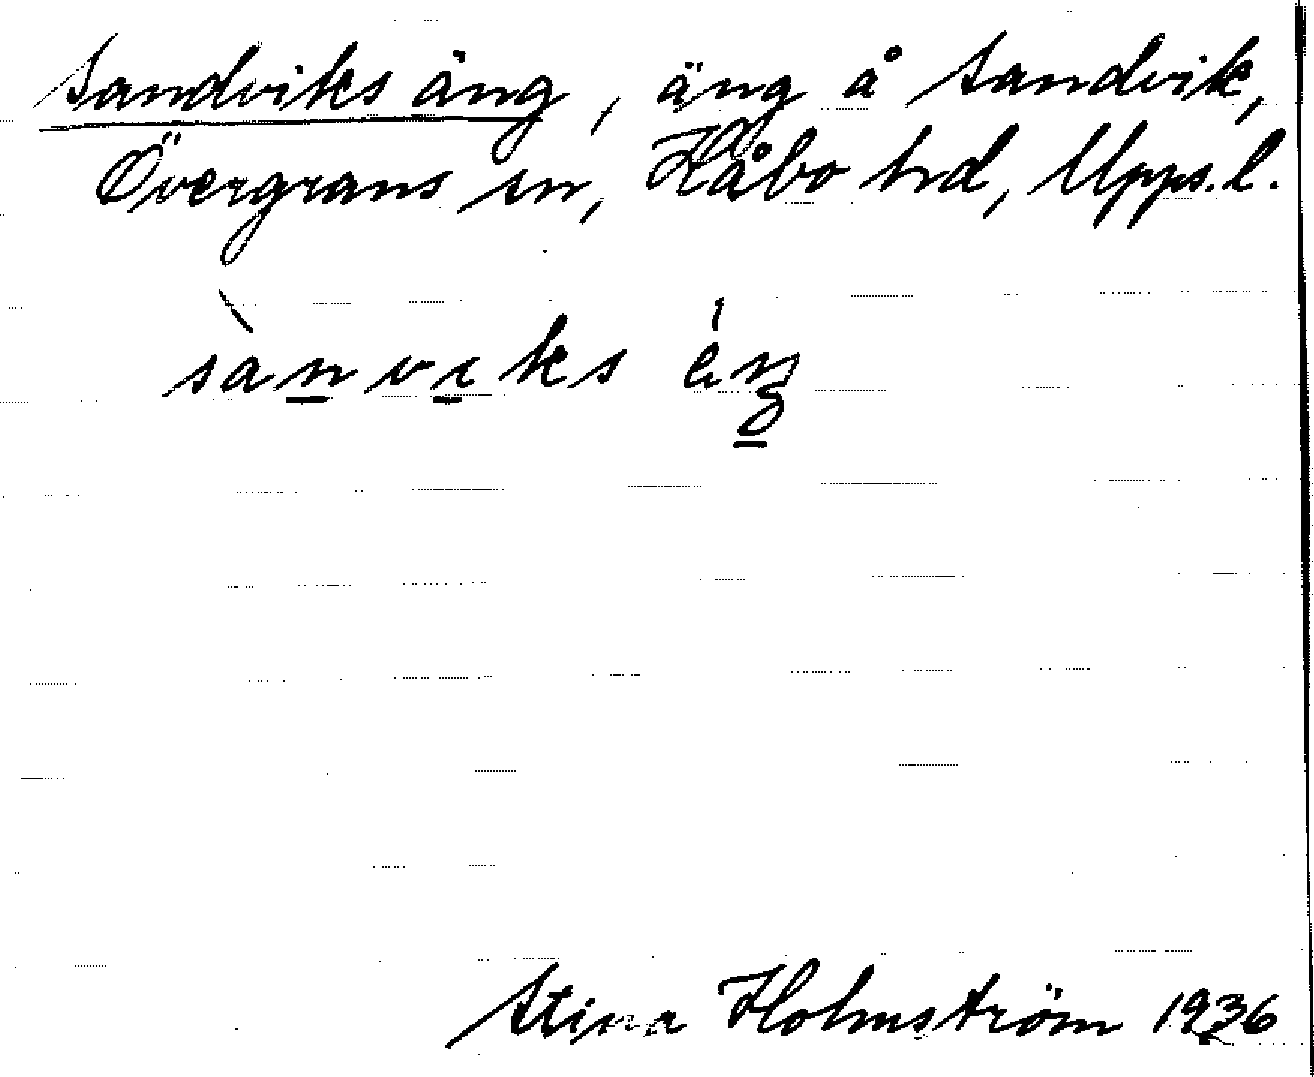 Sandviks äng, äng å Sandvik,
Övergrans sn, Håbo hd, Upps. l.
sànviks éŋ
Stina Holmström 1936